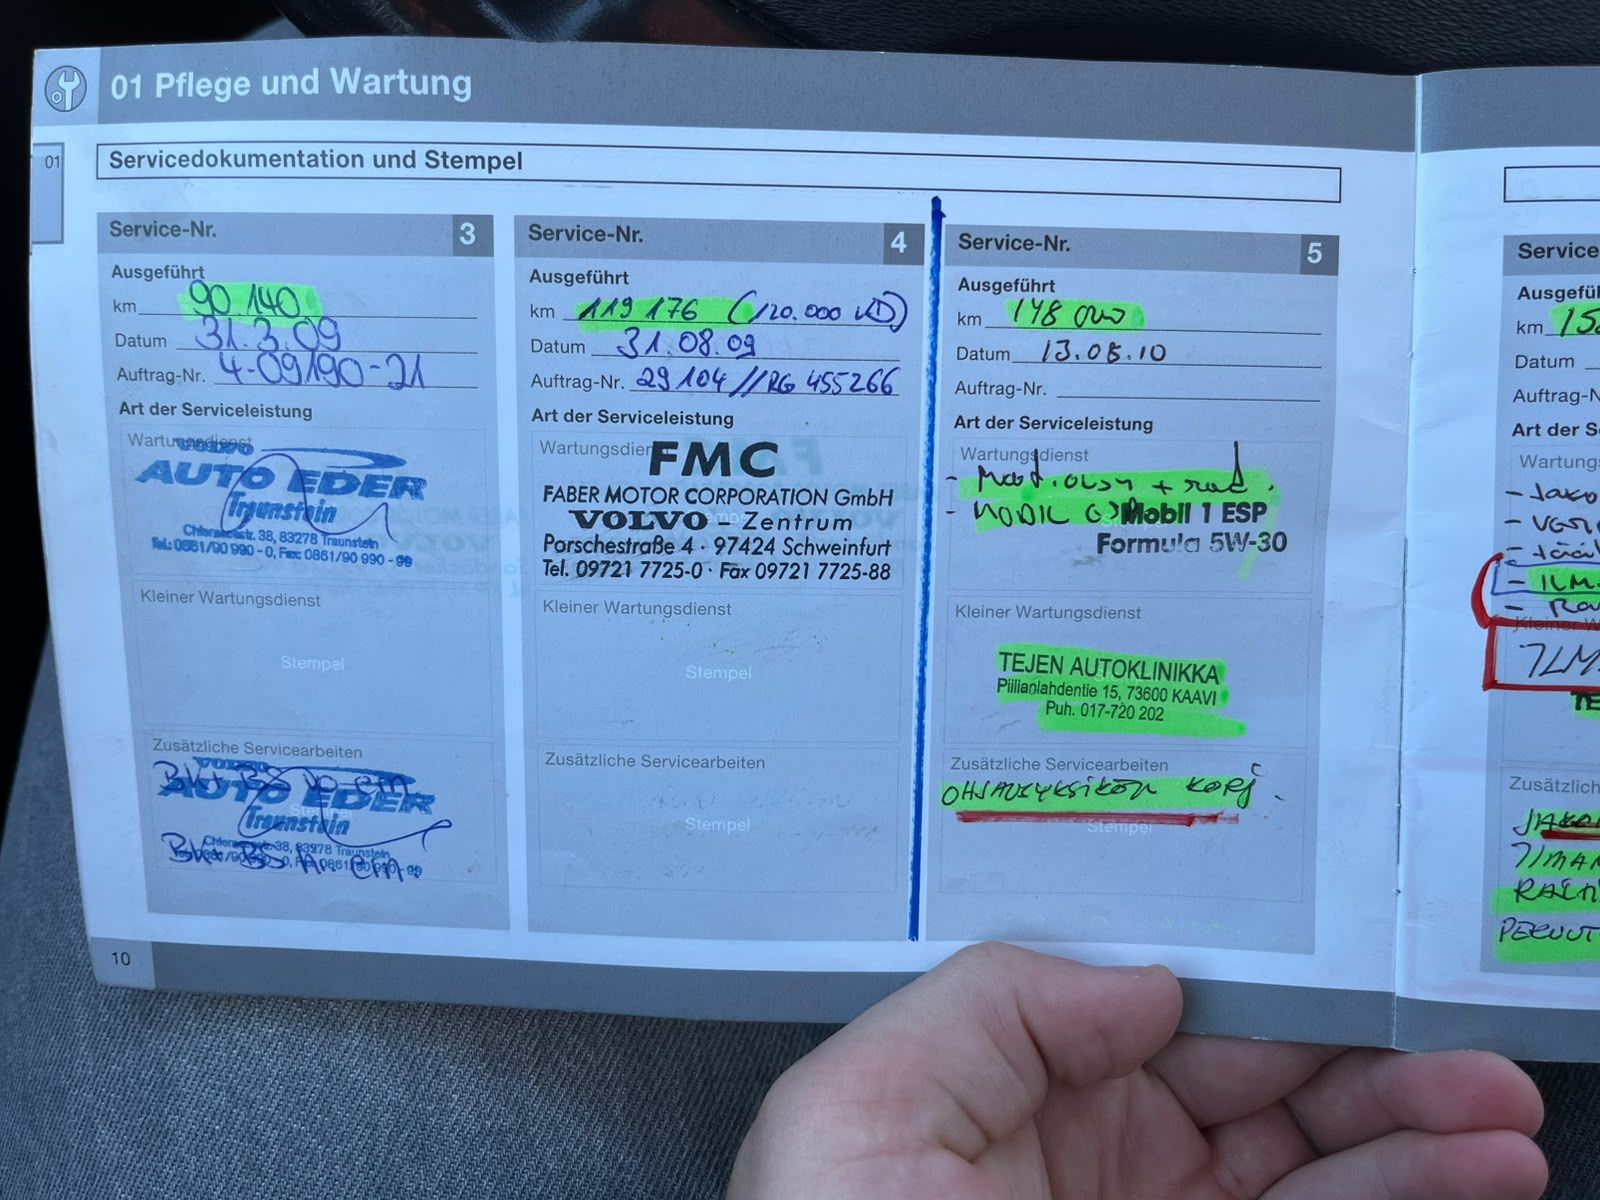 01 Pflege und Wartung
01
Servicedokumentation und Stempel
Service-Nr. 3
Ausgeführt
km 90.140
Datum 31.3.09
Auftrag-Nr. 4-09190-21
Art der Serviceleistung
Wartungsdienst
VOLVO
AUTO EDER
Traunstein
38, 83278 Traunstein
Tel.: 0861/90 990 - 0, Fax: 0861/90 990 - 99
Kleiner Wartungsdienst
Stempel
Zusätzliche Servicearbeiten
VOLVO
AUTO EDER
Traunstein
38, 83278 Traunstein
0861/90 990-0, Fax: 0861/90 990-99
Service-Nr. 4
Ausgeführt
km 119 176 (120.000 KD)
Datum 31.08.09
Auftrag-Nr. 29104//RG 455266
Art der Serviceleistung
Wartungsdien
FMC
FABER MOTOR CORPORATION GmbH
VOLVO - Zentrum
Porschestraße 4 · 97424 Schweinfurt
Tel. 09721 7725-0 · Fax 09721 7725-88
Kleiner Wartungsdienst
Stempel
Zusätzliche Servicearbeiten
Stempel
Service-Nr. 5
Ausgeführt
km 148 000
Datum
Auftrag-Nr.
Art der Serviceleistung
Wartungsdienst
- MOBIL
Mobil 1 ESP
Formula 5W-30
Kleiner Wartungsdienst
TEJEN AUTOKLINIKKA
Piilianlahdentie 15, 73600 KAAVI
Puh. 017-720 202
Zusätzliche Servicearbeiten
OHJAUSYKSIKÖN KORJ.
Stempel
10
Service
Ausgefüh
km 15
Datum
Auftrag-N
Art der S
Wartungs
- JAKO
Kleiner W
ILM
Zusätzlich
JAKO
ILMAN